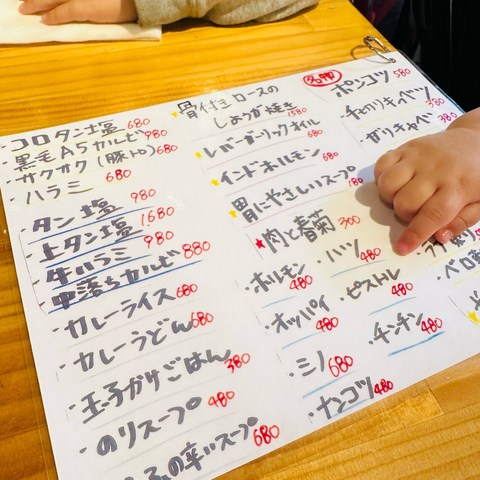 ・コロタン塩 680
・黒毛A5カルビ 980
・サクオク(豚トロ) 680
・ハラミ 680
・タン塩 980
・上タン塩 1680
・牛ハラミ 980
・中落ちカルビ 880
・カレーライス 680
・カレーうどん 680
・玉子かけごはん 380
・のりスープ 480
の辛いスープ 680
骨付きロースの
しょうが焼き 1580
・レバーガーリックオイル 680
・インドホルモン 680
・胃にやさしいスープ 180
★肉と春菊 300
・ホルモン 480
・ハツ 480
・オッパイ 480
・ピストル 480
・ミノ 680
・チンチン 480
・ナンコツ 480
名物
ポンコツ 580
・チョレギキャベツ 380
・ガリキャベ 380